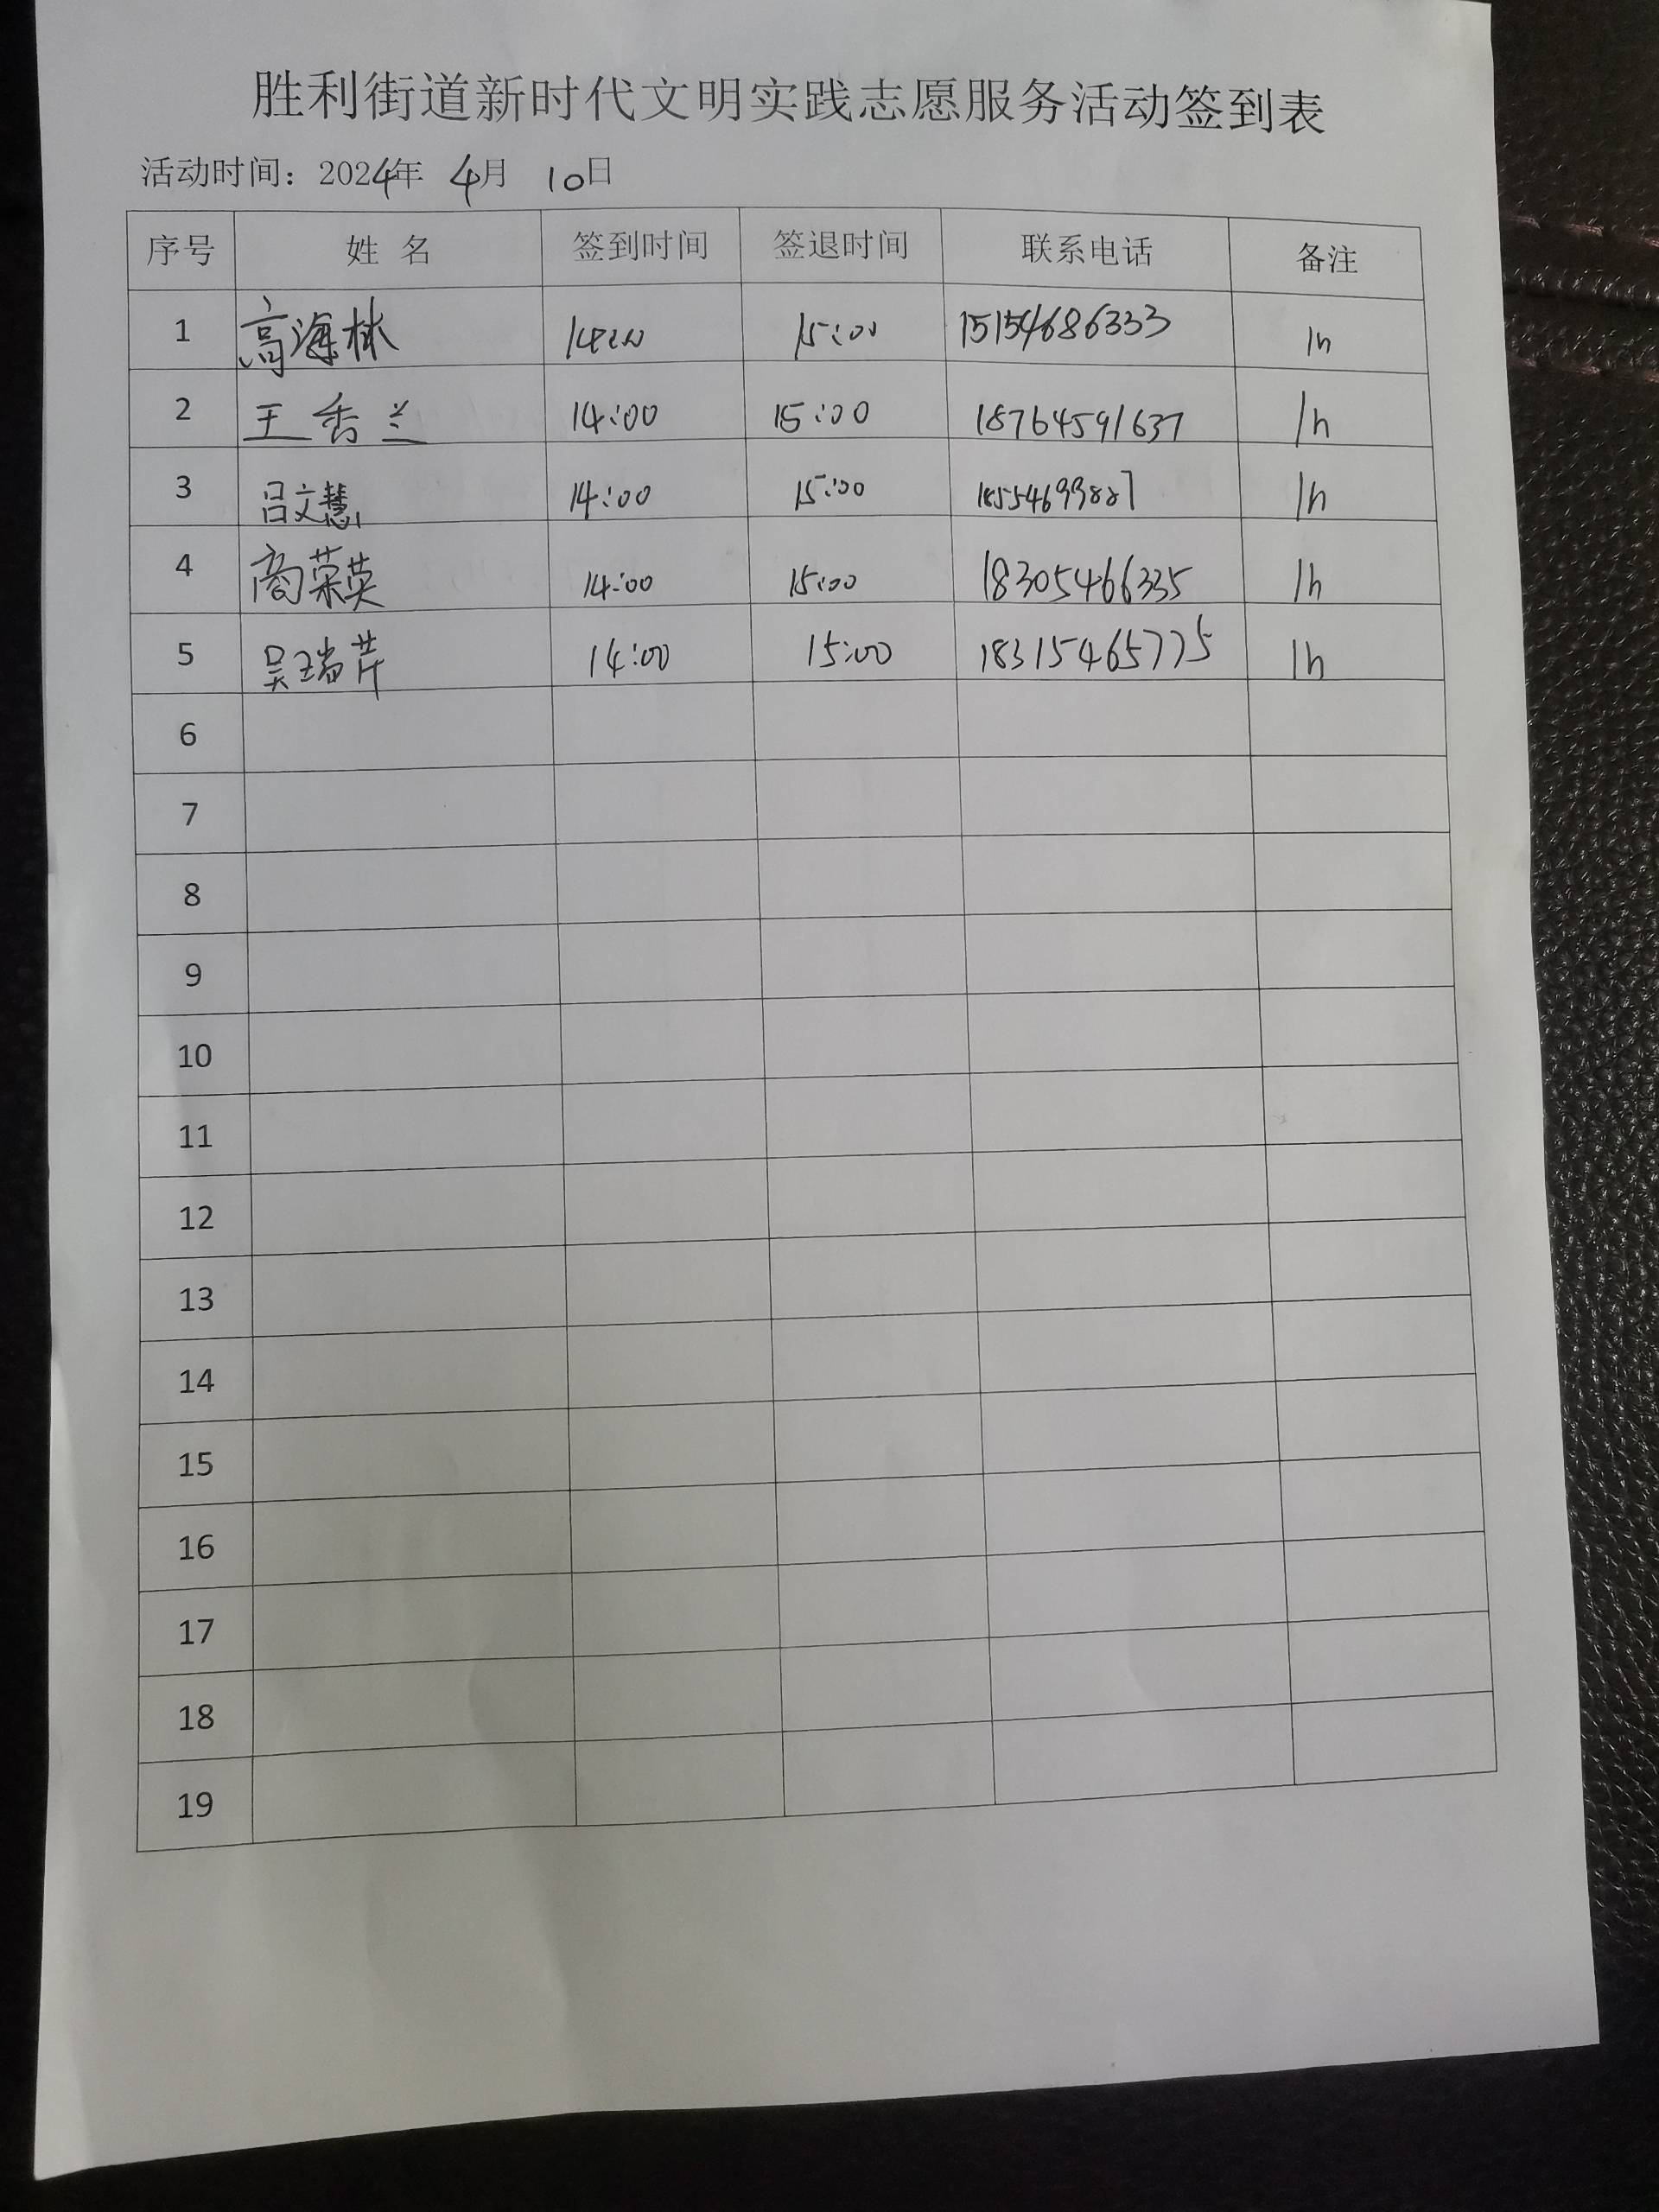 胜利街道新时代文明实践志愿服务活动签到表
活动时间：2024年 4月 10日
序号 姓名 签到时间 签退时间 联系电话 备注
1 高海林 14:00 15:00 15154686333 1h
2 王香兰 14:00 15:00 18764591637 1h
3 吕文慧 14:00 15:00 18554699887 1h
4 商荣英 14:00 15:00 18305466335 1h
5 吴瑞芹 14:00 15:00 18315465775 1h
6
7
8
9
10
11
12
13
14
15
16
17
18
19